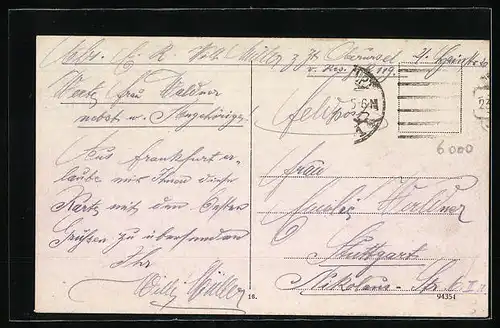 Abs. E. R. Wilh. Müller z. Zt. Oberursel
v. Res. 119.
Werte Frau Waldner
nebst w. Angehörigen!
Aus Frankfurt er-
laube mir Ihnen diese
Karte mit den besten
Grüßen zu übersenden
Ihr
Willy Müller
Feldpost
5-6 N
6000
Frau
Stuttgart
Nikolaus-Str.
16.
94351